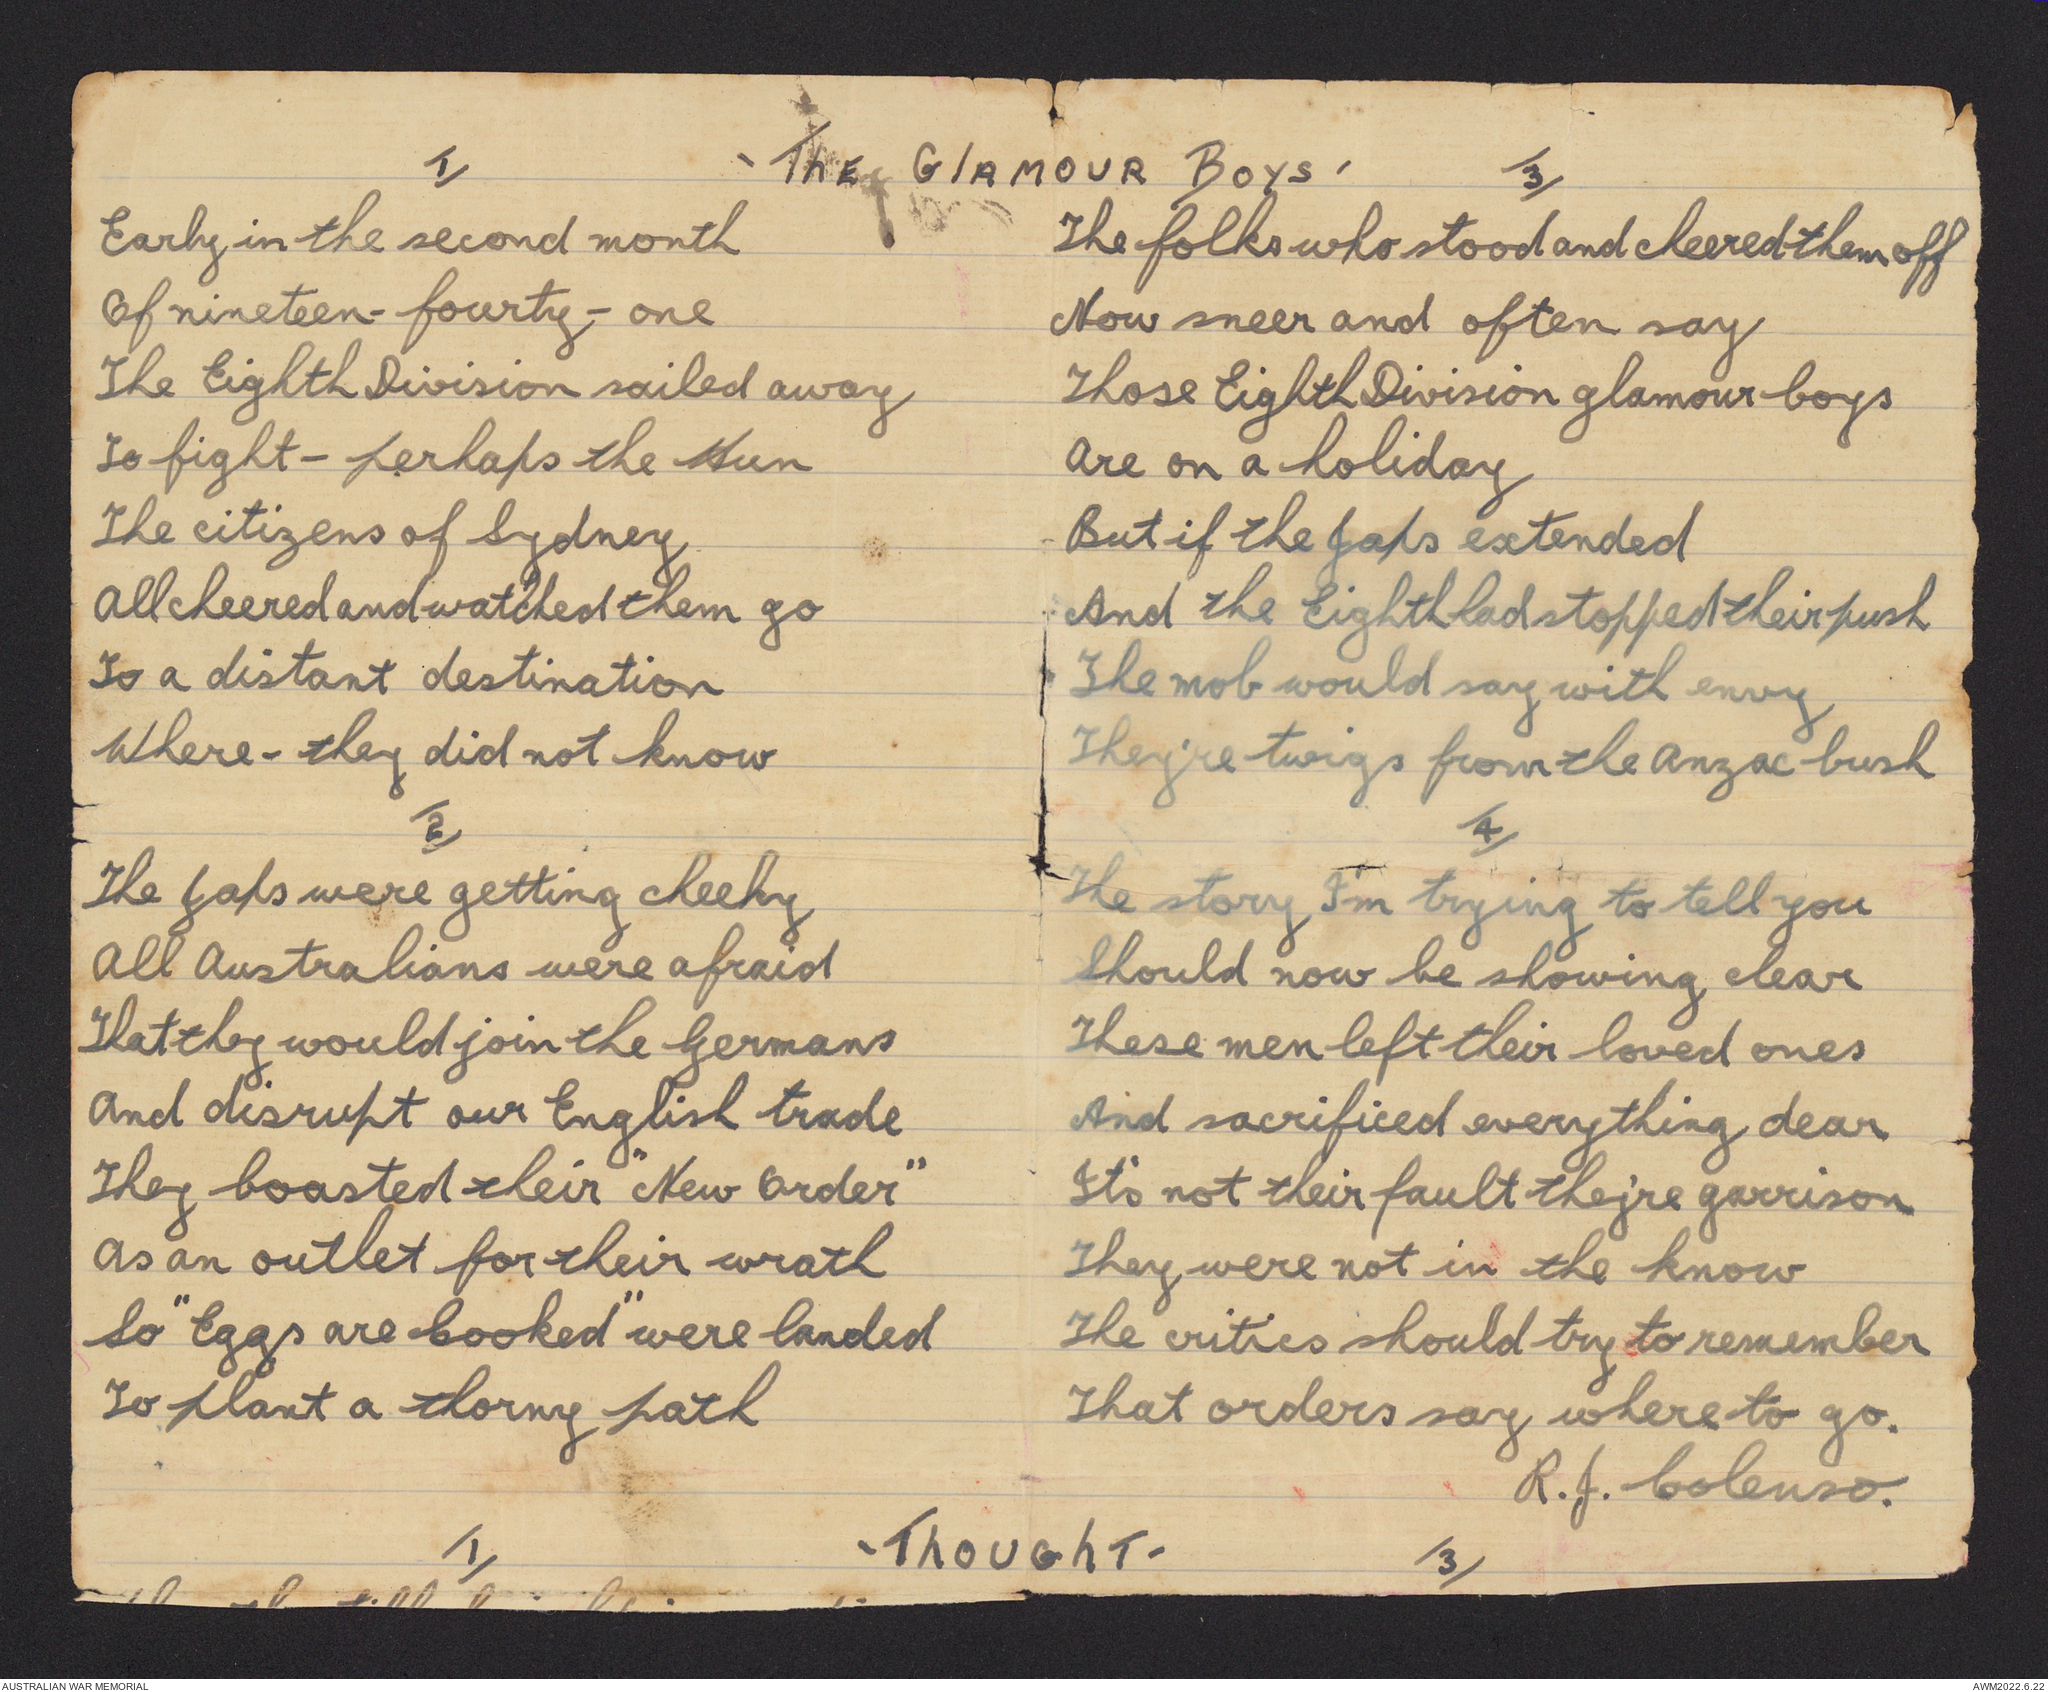 'The Glamour Boys'
1/
Early in the second month
Of nineteen-fourty-one
The Eighth Division sailed away
To fight - perhaps the Hun
The citizens of Sydney
All cheered and watched them go
To a distant destination
Where - they did not know
2/
The Japs were getting cheeky
All Australians were afraid
That they would join the Germans
And disrupt our English trade
They boasted their "New Order"
As an outlet for their wrath
So "Eggs are Cooked" were landed
To plant a thorny path
3/
The folks who stood and cheered them off
Now sneer and often say
Those Eighth Division glamour boys
Are on a holiday
But if the Japs extended
And the Eighth had stopped their push
The mob would say with envy
They're twigs from the Anzac bush
4/
The story I'm trying to tell you
Should now be showing clear
These men left their loved ones
And sacrificed everything dear
It's not their fault they're garrison
They were not in the know
The critics should try to remember
That orders say where to go.
R.J. Colenso.
-Thought-
1/
3/
AUSTRALIAN WAR MEMORIAL
AWM2022.6.22